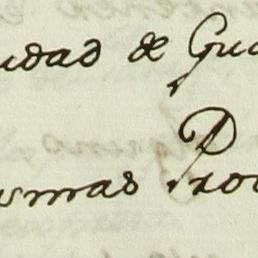 udad de Gua
smas Prov